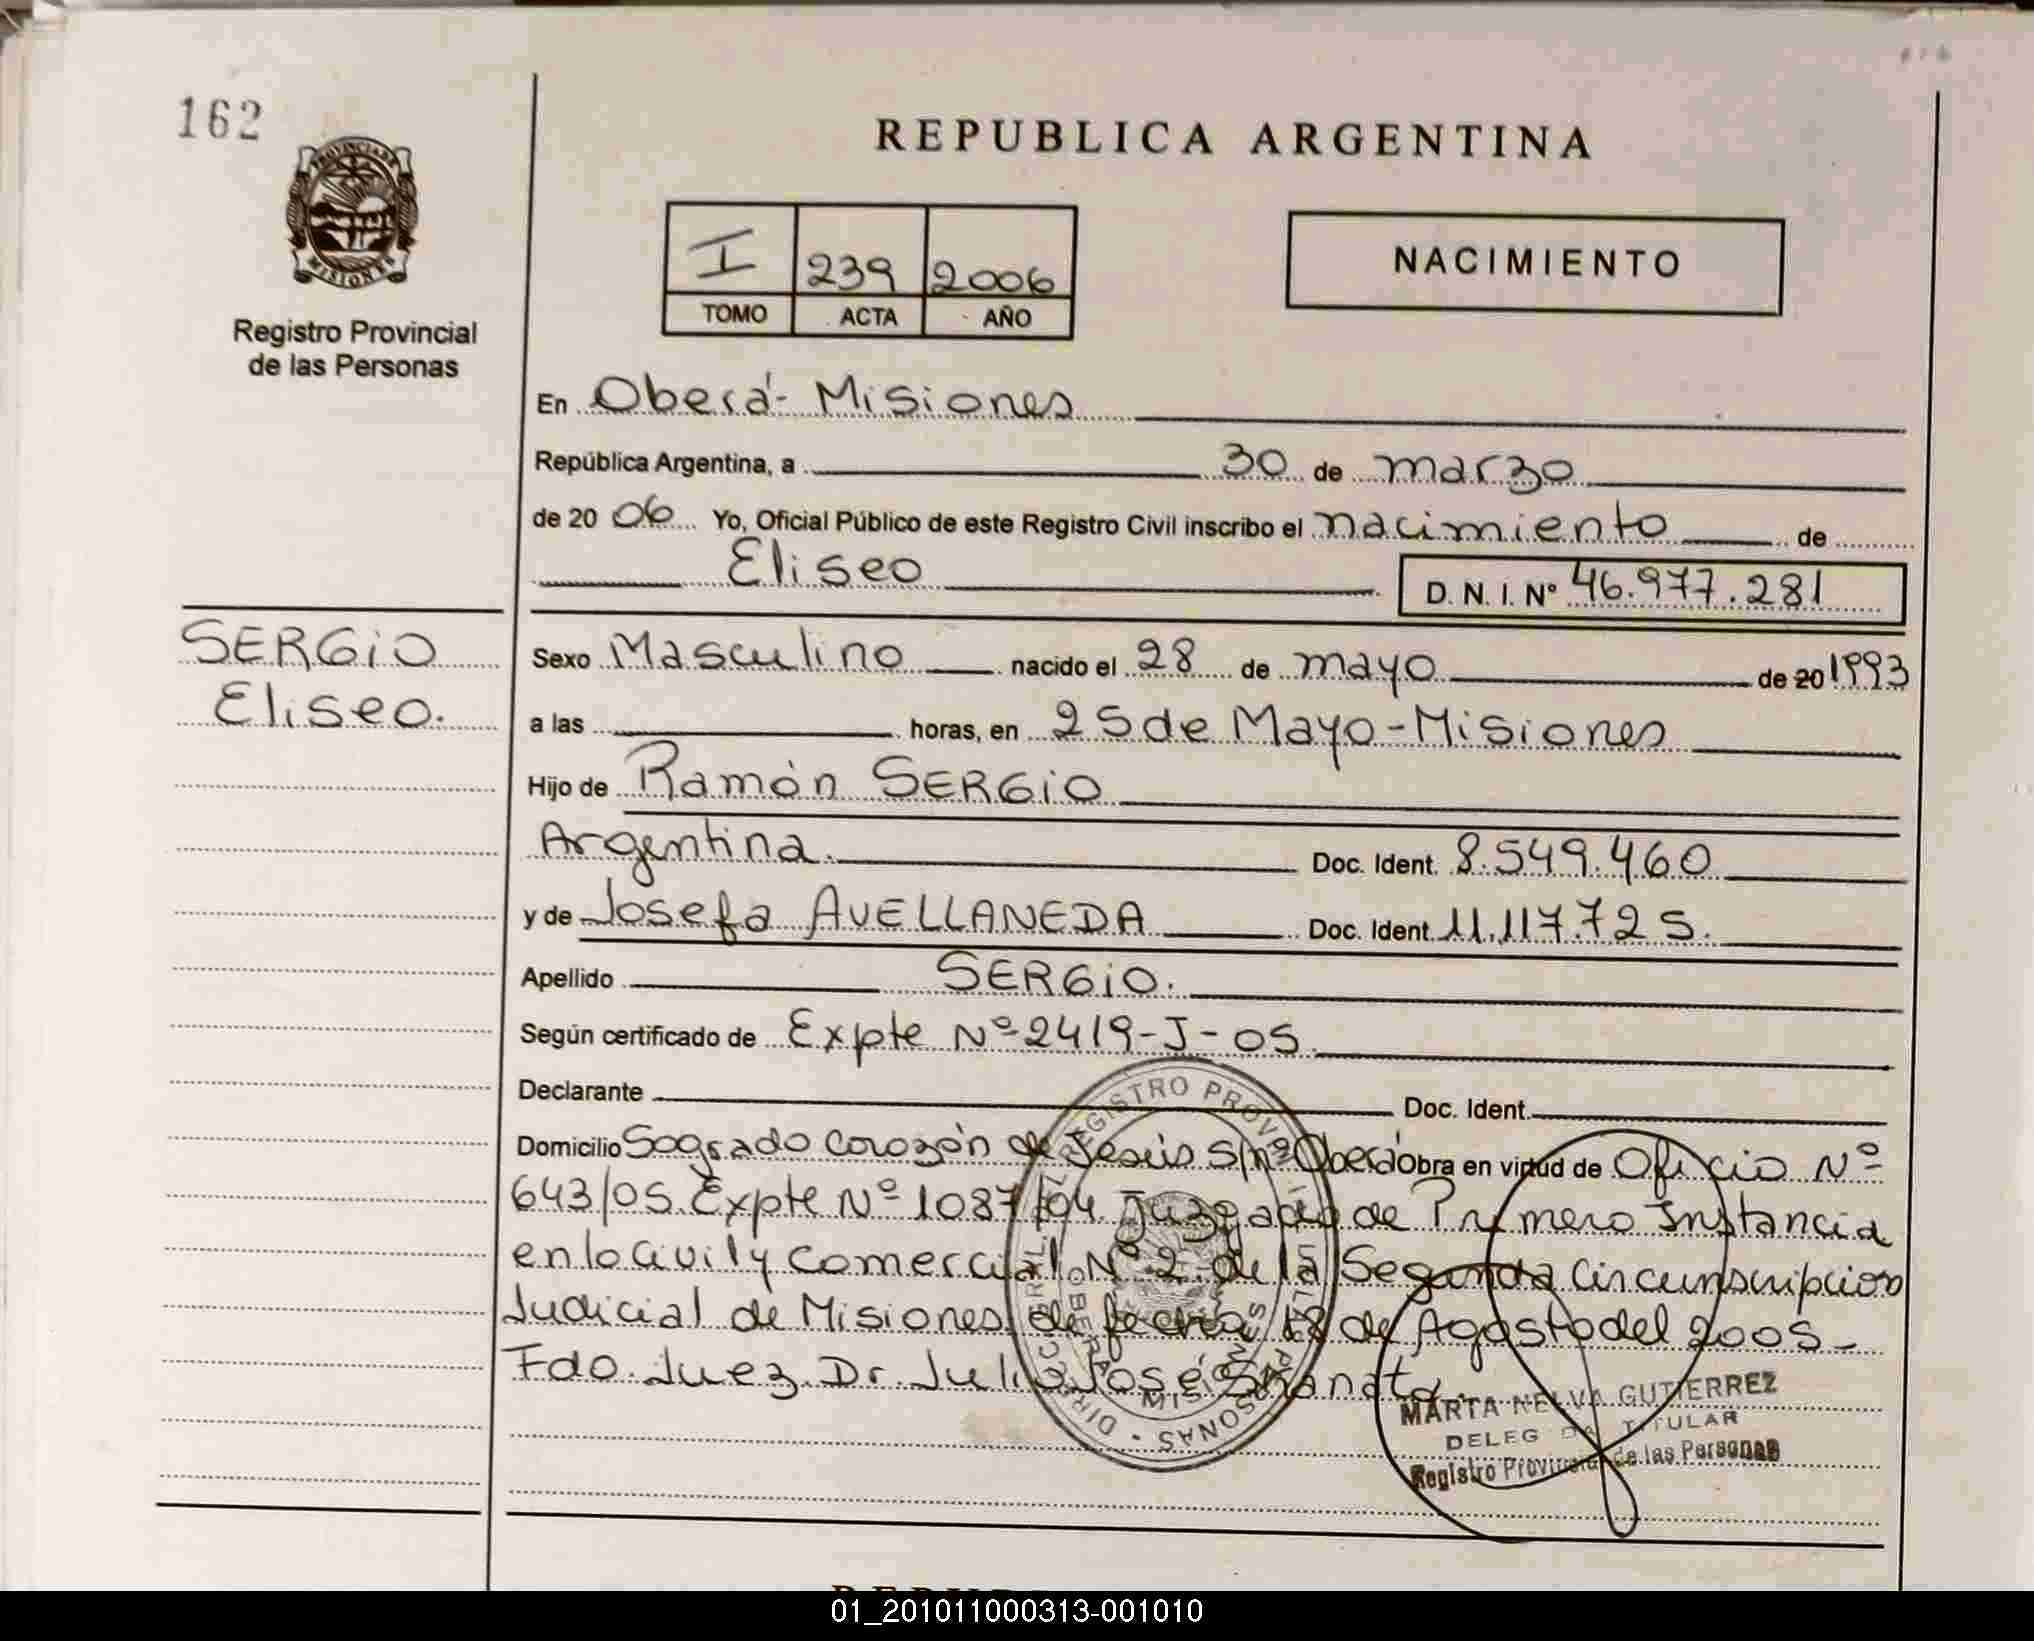 162
PROVINCIA DE
MISIONES
Registro Provincial
de las Personas
REPUBLICA ARGENTINA
I 239 2006
TOMO ACTA AÑO
NACIMIENTO
En Oberá - Misiones
República Argentina, a 30 de marzo
de 20 06 Yo, Oficial Público de este Registro Civil inscribo el nacimiento de
Eliseo D. N. I. Nº 46.977.281
SERGiO
Eliseo.
Sexo Masculino nacido el 28 de mayo de 20 1993
a las horas, en 25 de Mayo - Misiones
Hijo de Ramón SERGiO
Argentina. Doc. Ident. 8.549.460
y de Josefa AVELLANEDA Doc. Ident. 11.117.725.
Apellido SERGiO.
Según certificado de Expte Nº 2419-J-05
Declarante Doc. Ident.
Domicilio Sagrado Corazón de Jesús S/nº Oberá obra en virtud de Oficio Nº
643/05. Expte Nº 1087/04 Juzgado de Primera Instancia
en lo Civil y Comercial Nº 2 de la Segunda Circunscripcion
Judicial de Misiones de fecha 18 de Agosto del 2005-
Fdo. Juez Dr. Julio José
MARTA NELVA GUTIERREZ
DELEGADA TITULAR
Registro Provincial de las Personas
01_201011000313-001010